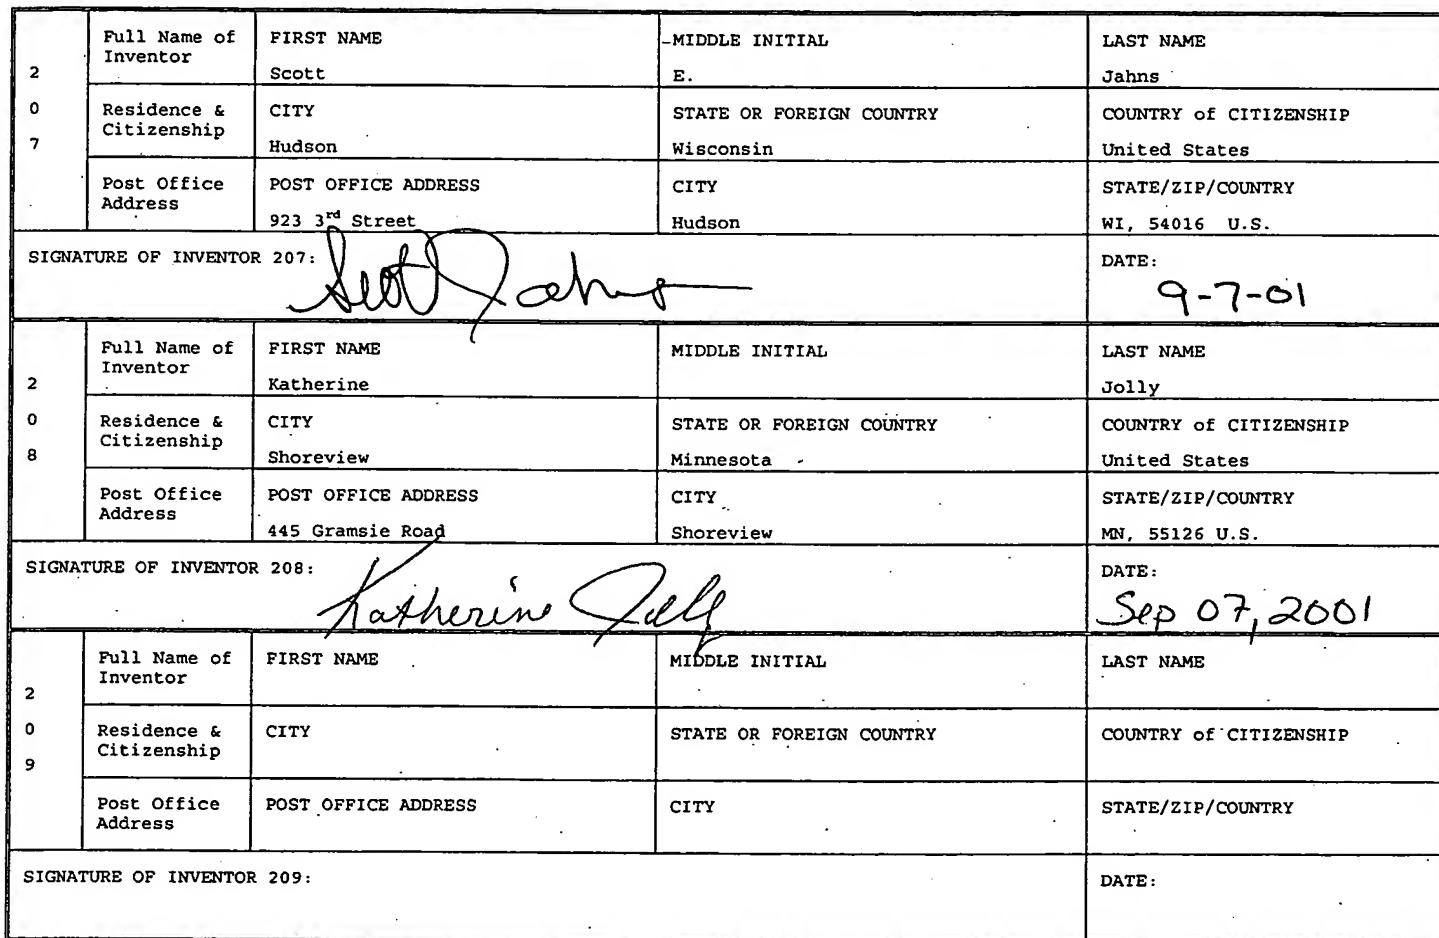 2 0 7
Full Name of Inventor
FIRST NAME
Scott
MIDDLE INITIAL
E.
LAST NAME
Jahns
Residence & Citizenship
CITY
Hudson
STATE OR FOREIGN COUNTRY
Wisconsin
COUNTRY of CITIZENSHIP
United States
Post Office Address
POST OFFICE ADDRESS
923 3rd Street
CITY
Hudson
STATE/ZIP/COUNTRY
WI, 54016 U.S.
SIGNATURE OF INVENTOR 207:
Scott Jahns
DATE:
9-7-01
2 0 8
Full Name of Inventor
FIRST NAME
Katherine
MIDDLE INITIAL
LAST NAME
Jolly
Residence & Citizenship
CITY
Shoreview
STATE OR FOREIGN COUNTRY
Minnesota
COUNTRY of CITIZENSHIP
United States
Post Office Address
POST OFFICE ADDRESS
445 Gramsie Road
CITY
Shoreview
STATE/ZIP/COUNTRY
MN, 55126 U.S.
SIGNATURE OF INVENTOR 208:
Katherine Jolly
DATE:
Sep 07, 2001
2 0 9
Full Name of Inventor
FIRST NAME
MIDDLE INITIAL
LAST NAME
Residence & Citizenship
CITY
STATE OR FOREIGN COUNTRY
COUNTRY of CITIZENSHIP
Post Office Address
POST OFFICE ADDRESS
CITY
STATE/ZIP/COUNTRY
SIGNATURE OF INVENTOR 209:
DATE: